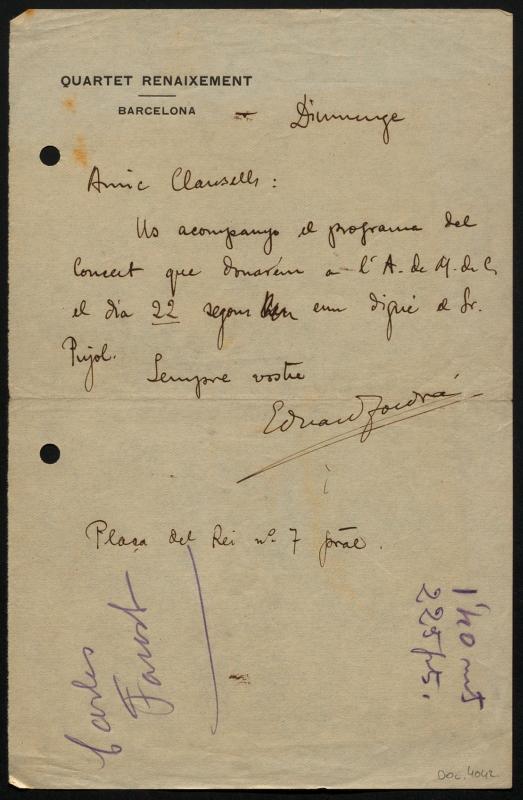 QUARTET RENAIXEMENT
BARCELONA
Diumenge
Amic Clausells:
Us acompanyo el programa del
Concert que donarem a l'A. de M. de C.
el dia 22 segons em digué el Sr.
Pujol.
Sempre vostre
Eduard Toldrà
Plaça del Rei nº 7 pral.
Carles
Faust
1'40 mts
225 pts.
Doc. 4042